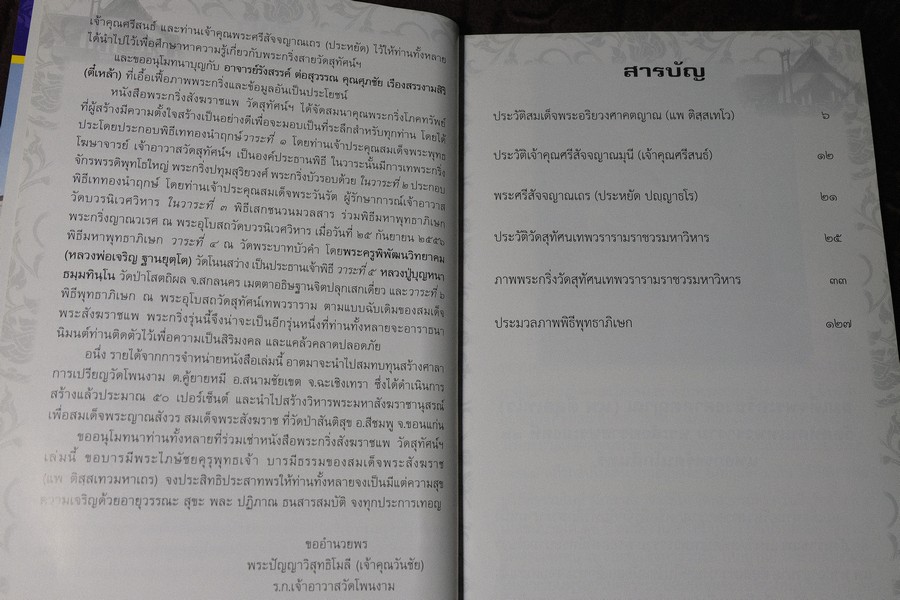 เจ้าคุณศรีสนธ์ และท่านเจ้าคุณพระศรีสัจจญาณเถร (ประหยัด) ไว้ให้ท่านทั้งหลาย
ได้นำไปไว้เพื่อศึกษาหาความรู้เกี่ยวกับพระกริ่งสายวัดสุทัศน์ฯ
และขออนุโมทนาบุญกับ อาจารย์รังสรรค์ ต่อสุวรรณ คุณศุภชัย เรืองสรรงามสิริ
(ตี๋เหล้า) ที่เอื้อเฟื้อภาพพระกริ่งและข้อมูลอันเป็นประโยชน์
หนังสือพระกริ่งสังฆราชแพ วัดสุทัศน์ฯ ได้จัดสมนาคุณพระกริ่งโภคทรัพย์
ที่ผู้สร้างมีความตั้งใจสร้างเป็นอย่างดีเพื่อจะมอบเป็นที่ระลึกสำหรับทุกท่าน โดยได้
ประโดยประกอบพิธีเททองนำฤกษ์วาระที่ ๑ โดยท่านเจ้าประคุณสมเด็จพระพุทธ
โฆษาจารย์ เจ้าอาวาสวัดสุทัศน์ฯ เป็นองค์ประธานพิธี ในวาระนั้นมีการเทพระกริ่ง
จักรพรรดิพุทโธใหญ่ พระกริ่งปทุมสุริยวงศ์ พระกริ่งบัวรอบด้วย ในวาระที่ ๒ ประกอบ
พิธีเททองนำฤกษ์ โดยท่านเจ้าประคุณสมเด็จพระวันรัต ผู้รักษาการณ์เจ้าอาวาส
วัดบวรนิเวศวิหาร ในวาระที่ ๓ พิธีเสกชนวนมวลสาร ร่วมพิธีมหาพุทธาภิเษก
พระกริ่งญาณวเรศ ณ พระอุโบสถวัดบวรนิเวศวิหาร เมื่อวันที่ ๒๕ กันยายน ๒๕๕๖
พิธีมหาพุทธาภิเษก วาระที่ ๔ ณ วัดพระบาทบัวคำ โดยพระครูพิพัฒนวิทยาคม
(หลวงพ่อเจริญ ฐานยุตฺโต) วัดโนนสว่าง เป็นประธานเจ้าพิธี วาระที่ ๕ หลวงปู่บุญหนา
ธมฺมทินฺโน วัดป่าโสตถิผล จ.สกลนคร เมตตาอธิษฐานจิตปลุกเสกเดี่ยว และวาระที่ ๖
พิธีพุทธาภิเษก ณ พระอุโบสถวัดสุทัศน์เทพวราราม ตามแบบฉบับเดิมของสมเด็จ
พระสังฆราชแพ พระกริ่งรุ่นนี้จึงน่าจะเป็นอีกรุ่นหนึ่งที่ท่านทั้งหลายจะอาราธนา
นิมนต์ท่านติดตัวไว้เพื่อความเป็นสิริมงคล และแคล้วคลาดปลอดภัย
อนึ่ง รายได้จากการจำหน่ายหนังสือเล่มนี้ อาตมาจะนำไปสมทบทุนสร้างศาลา
การเปรียญวัดโพนงาม ต.คู้ยายหมี อ.สนามชัยเขต จ.ฉะเชิงเทรา ซึ่งได้ดำเนินการ
สร้างแล้วประมาณ ๕๐ เปอร์เซ็นต์ และนำไปสร้างวิหารพระมหาสังฆราชานุสรณ์
เพื่อสมเด็จพระญาณสังวร สมเด็จพระสังฆราช ที่วัดป่าสันติสุข อ.สีชมพู จ.ขอนแก่น
ขออนุโมทนาท่านทั้งหลายที่ร่วมเช่าหนังสือพระกริ่งสังฆราชแพ วัดสุทัศน์ฯ
เล่มนี้ ขอบารมีพระไภษัชยคุรุพุทธเจ้า บารมีธรรมของสมเด็จพระสังฆราช
(แพ ติสฺสเทวมหาเถร) จงประสิทธิประสาทพรให้ท่านทั้งหลายจงเป็นมีแต่ความสุข
ความเจริญด้วยอายุวรรณะ สุขะ พละ ปฏิภาณ ธนสารสมบัติ จงทุกประการเทอญ
ขออำนวยพร
พระปัญญาวิสุทธิโมลี (เจ้าคุณวันชัย)
ร.ก.เจ้าอาวาสวัดโพนงาม
สารบัญ
ประวัติสมเด็จพระอริยวงศาคตญาณ (แพ ติสฺสเทโว) ๖
ประวัติเจ้าคุณศรีสัจจญาณมุนี (เจ้าคุณศรีสนธ์) ๑๒
พระศรีสัจจญาณเถร (ประหยัด ปญฺญาธโร) ๒๑
ประวัติวัดสุทัศนเทพวรารามราชวรมหาวิหาร ๒๕
ภาพพระกริ่งวัดสุทัศนเทพวรารามราชวรมหาวิหาร ๓๓
ประมวลภาพพิธีพุทธาภิเษก ๑๒๗